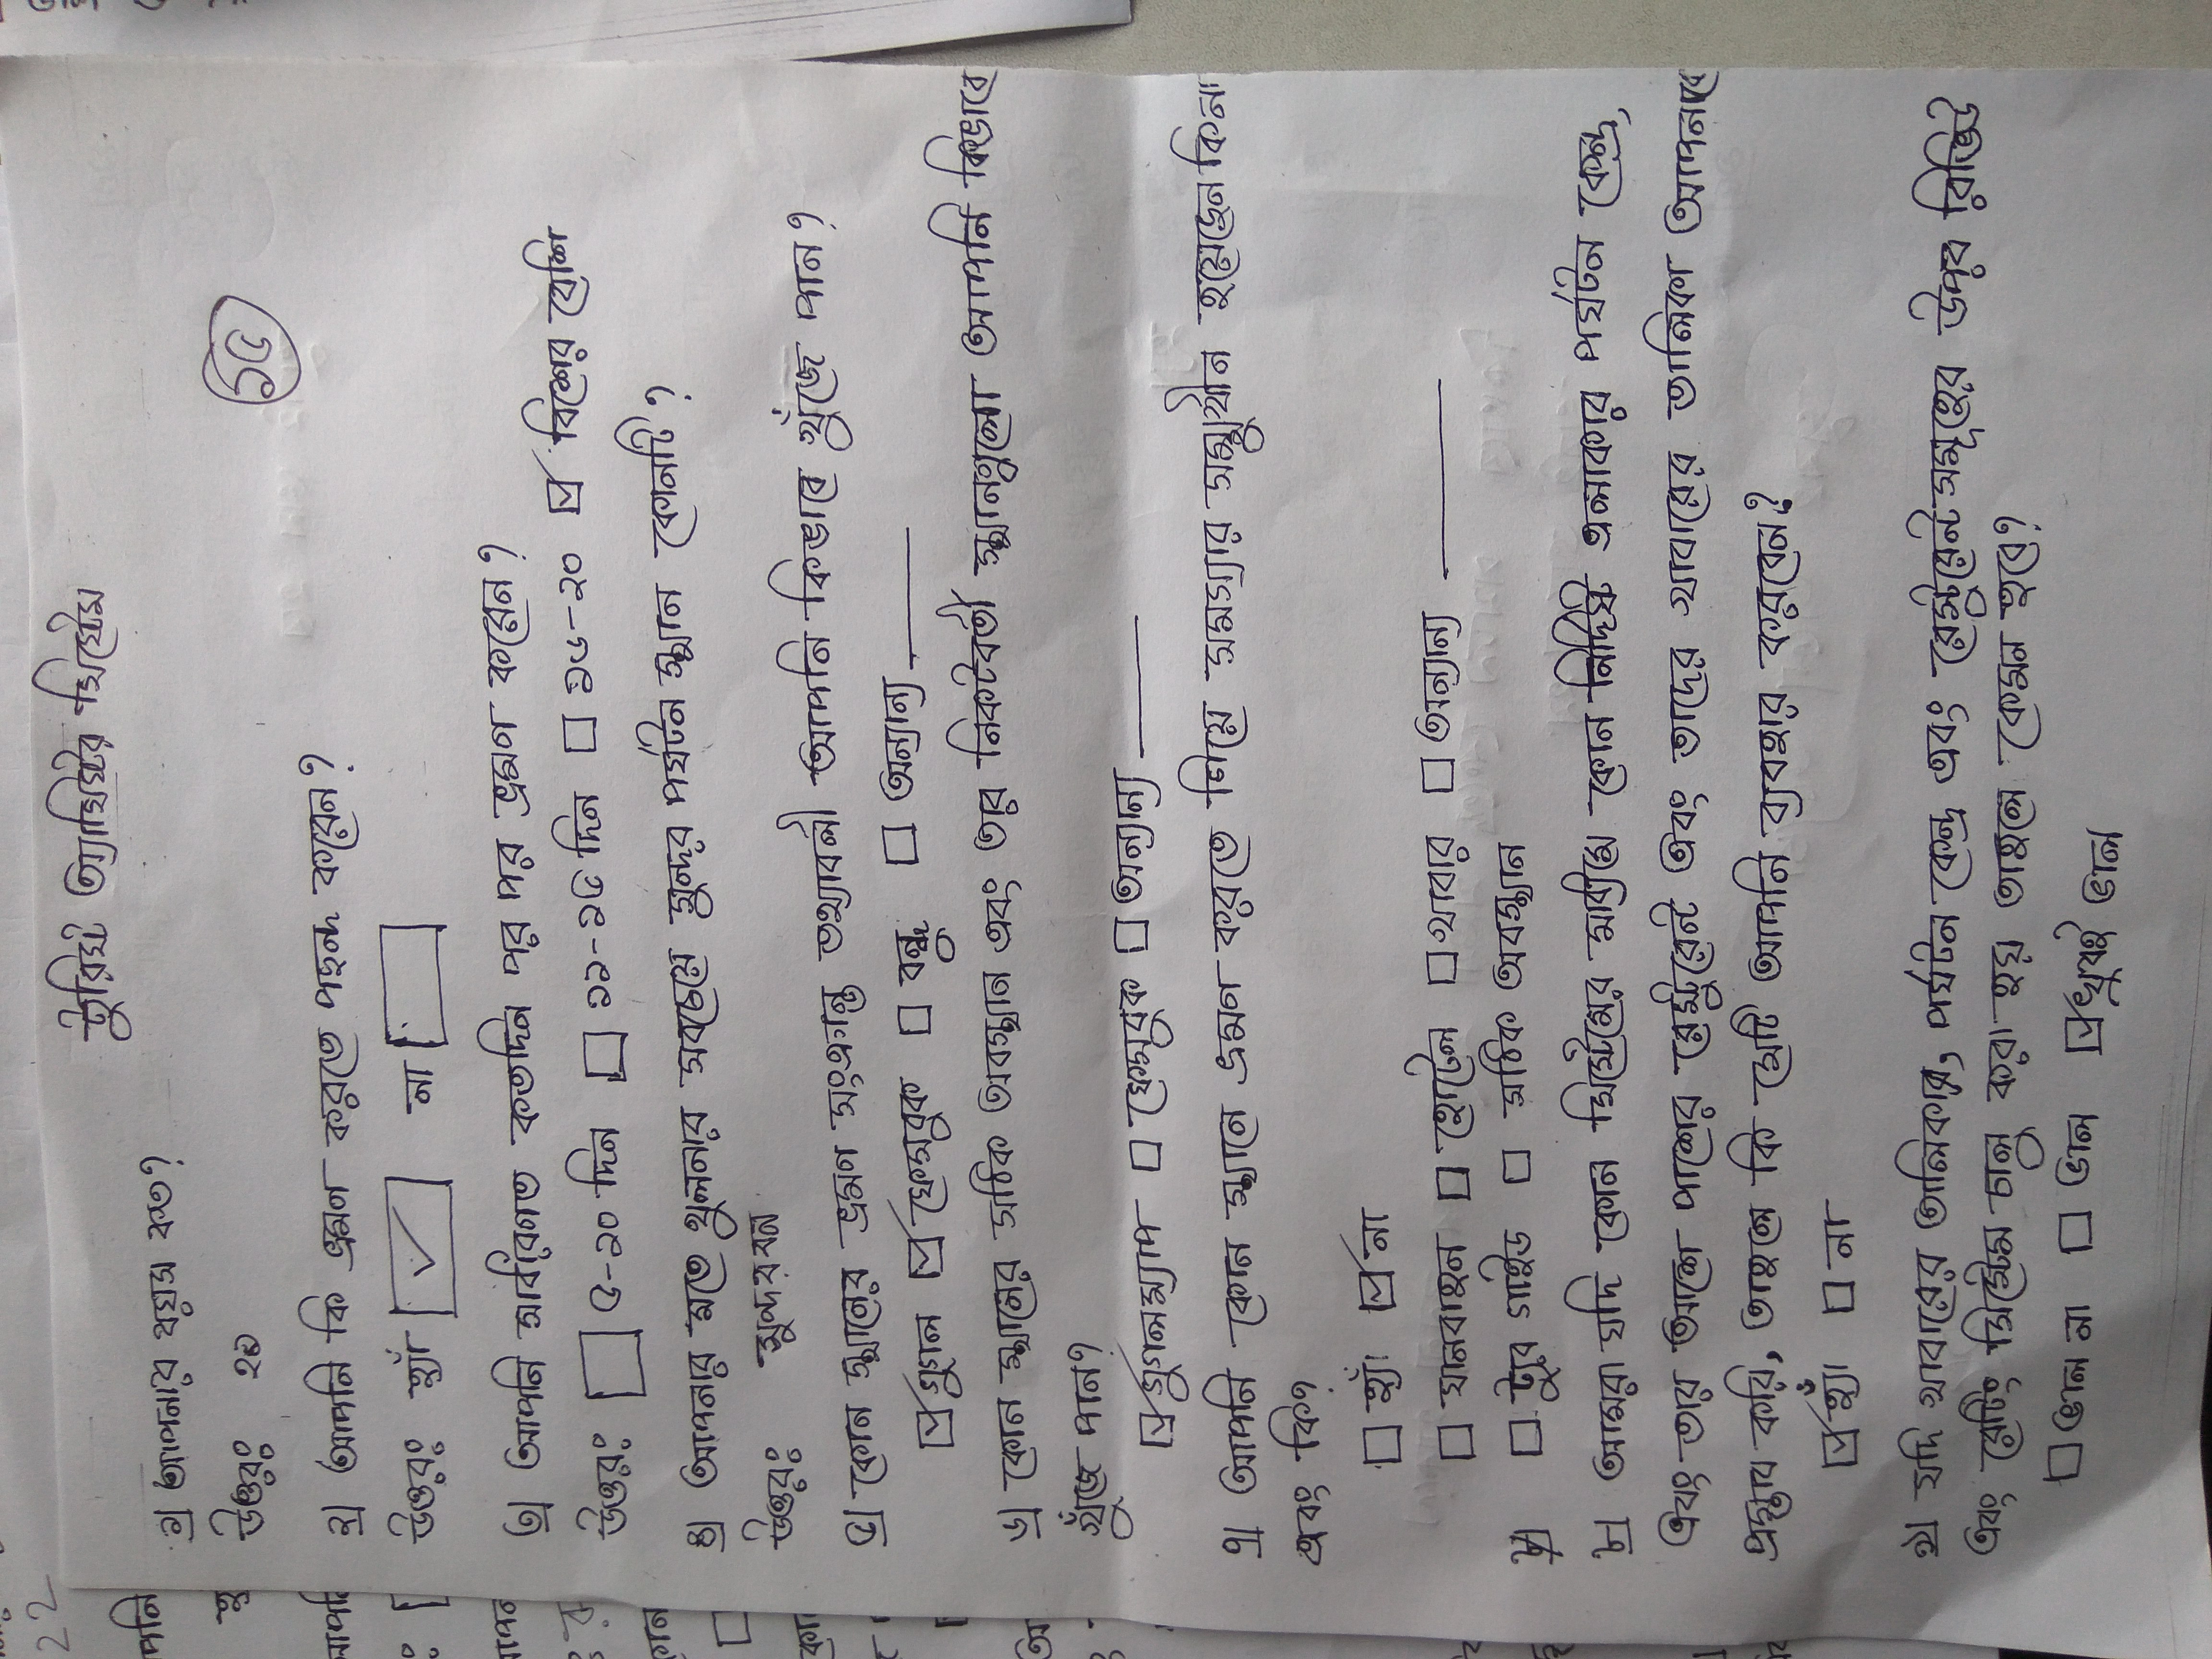 ট্যুরিস্ট অ্যাসিস্টেন্ট সিস্টেম
১৫
১) আপনার বয়স কত?
উত্তরঃ ২৬
২) আপনি কি ভ্রমণ করতে পছন্দ করেন?
উত্তরঃ হ্যাঁ না
৩) আপনি সর্বনিম্ন কতদিন পর পর ভ্রমণ করেন?
উত্তরঃ ৫-১০ দিন ১১-১৫ দিন ১৬-২০ বিশের বেশি
৪) আপনার মতে খুলনার সবচেয়ে সুন্দর পর্যটন স্থান কোনটি?
উত্তরঃ সুন্দরবন
৫) কোন স্থানের ভ্রমণ সংক্রান্ত তথ্যাবলী আপনি কিভাবে খুঁজে পান?
গুগল ফেসবুক বন্ধু অন্যান্য
৬) কোন স্থানের সঠিক অবস্থান এবং তার নিকটবর্তী স্থানগুলো আপনি কিভাবে
খুঁজে পান?
গুগলম্যাপ ফেসবুক অন্যান্য
৭) আপনি কোন স্থানে ভ্রমন করতে গিয়ে সমস্যার সম্মুখীন হয়েছেন কিনা
এবং কি?
হ্যাঁ না
যানবাহন হোটেল খাবার অন্যান্য
ট্যুর গাইড সঠিক অবস্থান
৮) আমরা যদি কোন সিস্টেমের মাধ্যমে কোন নির্দিষ্ট এলাকার পর্যটন কেন্দ্র,
এবং তার আশে পাশের রেস্টুরেন্ট এবং তাদের খাবারের তালিকা আপনাকে
প্রস্তাব করি, তাহলে কি সেটি আপনি ব্যবহার করবেন?
হ্যাঁ না
৯) যদি খাবারের তালিকায়, পর্যটন কেন্দ্র এবং রেস্টুরেন্টসমূহের উপর রিভিউ
এবং রেটিং সিস্টেম চালু করা হয় তাহলে কেমন হবে?
ভাল না ভাল খুবই ভাল